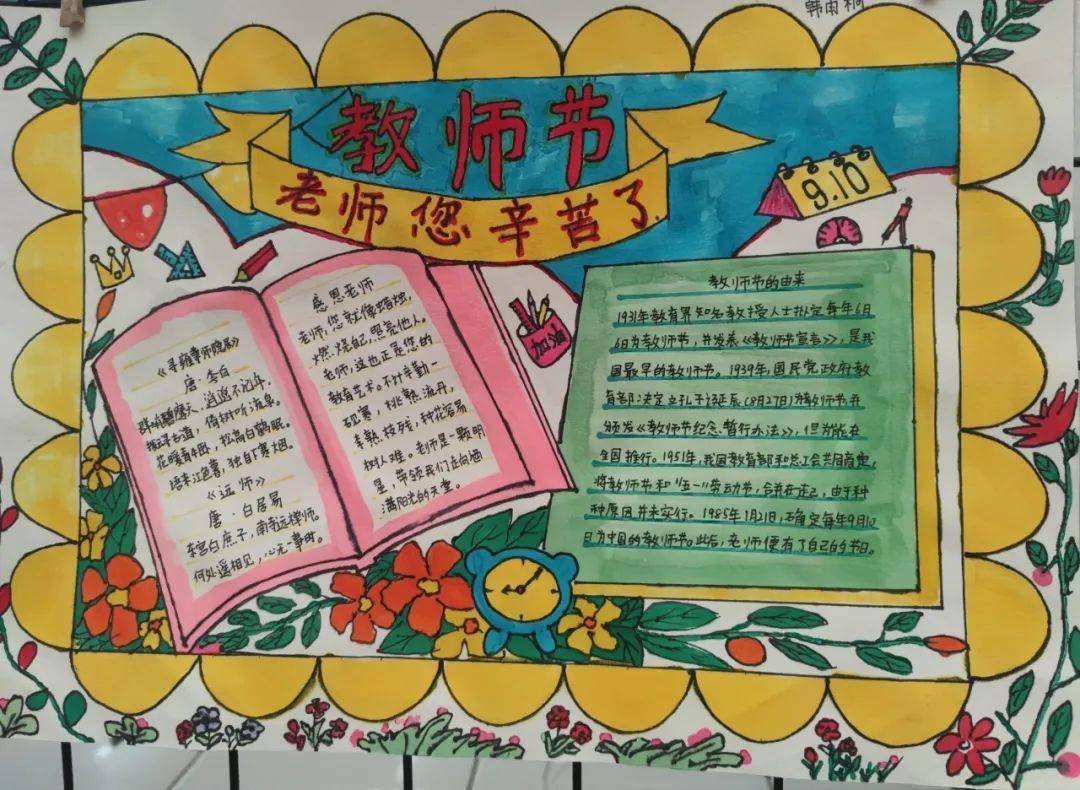 韩雨桐
教师节
老师您辛苦了
9.10
《寻雍尊师隐居》
唐·李白
群峭碧摩天,逍遥不记年。
拨云寻古道,倚树听流泉。
花暖青牛卧,松高白鹤眠。
语来江色暮,独自下寒烟。
《远师》
唐·白居易
东宫白庶子,南寺远禅师。
何处遥相见,心无一事时。
感恩老师
老师,您就像蜡烛,
燃烧自己,照亮他人。
老师,这也正是您的
教育艺术。不计辛勤一
砚寒,桃熟流丹,
李熟枝残,种花容易
树人难。老师是一颗明
星,带领我们走向洒
满阳光的天堂。
加油
教师节的由来
1931年教育界知名教授人士拟定每年6月
6日为教师节,并发表《教师节宣言》,是我
国最早的教师节。1939年国民党政府教
育部决定立孔子诞辰(8月27日)为教师节,并
颁发《教师节纪念暂行办法》,但为能在
全国推行。1951年,我国教育部和总工会共同商定,
将教师节和"五一"劳动节,合并在一起,由于种
种原因并未实行。1985年1月21日,确定每年9月10
日为中国的教师节。此后,老师便有了自己的节日。